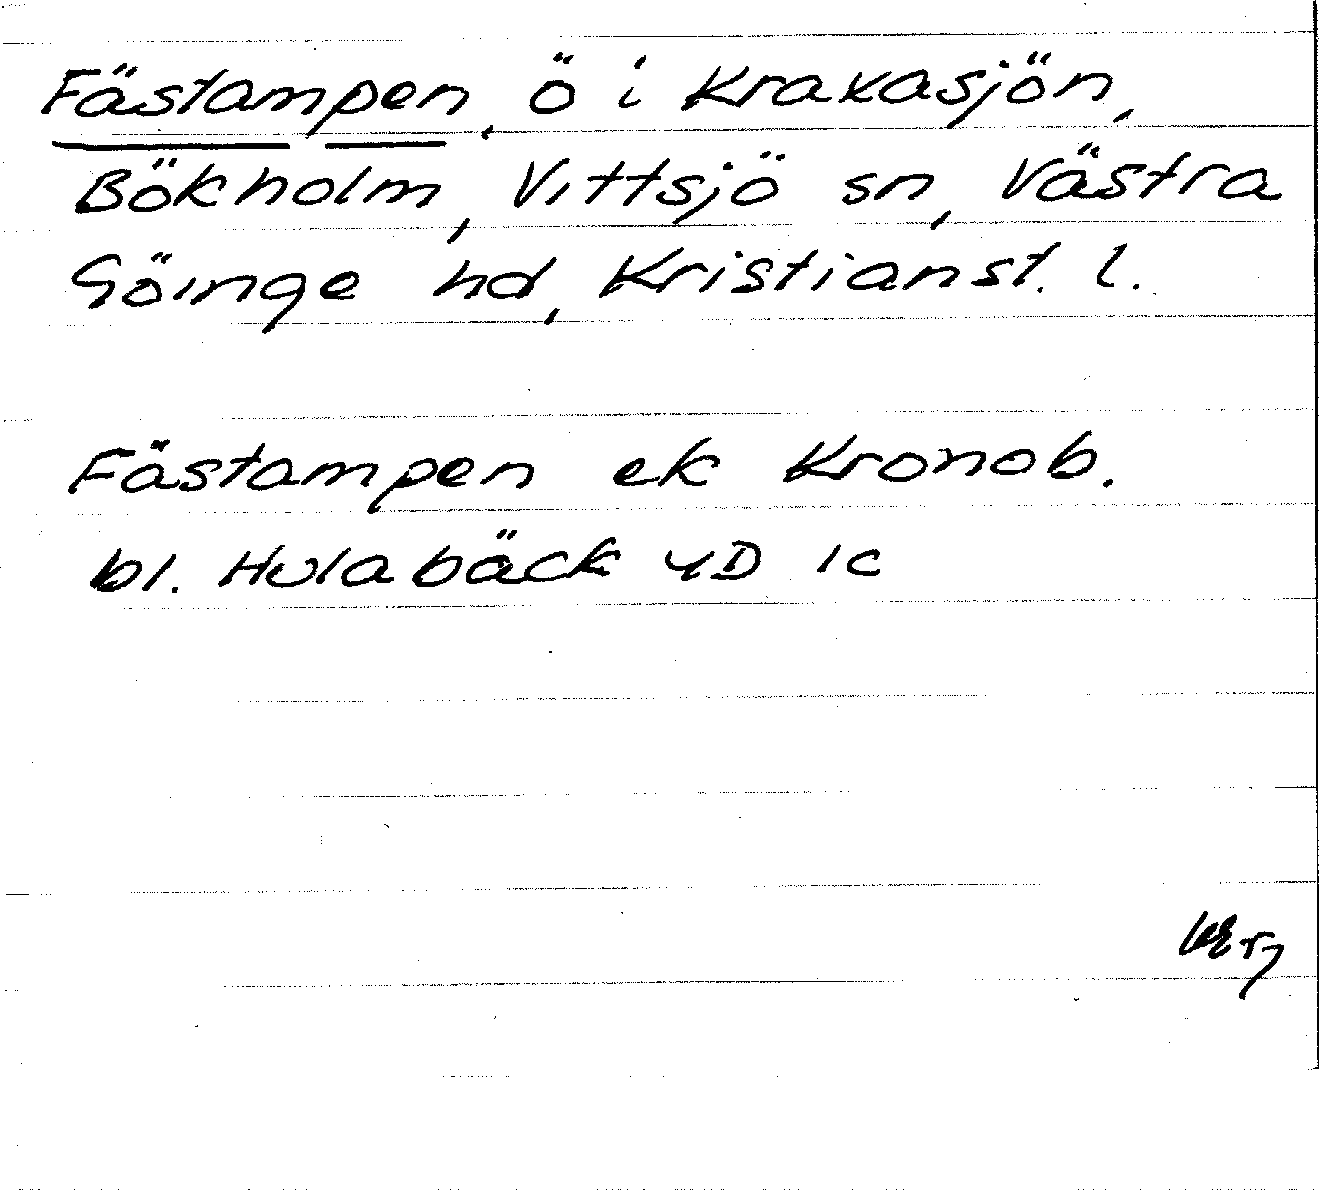 Fästampen, ö i Krakasjön,
Bökholm, Vittsjö sn, Västra
Göinge hd, Kristianst. l.
Fästampen ek Kronob.
bl. Hulabäck 4D 1c